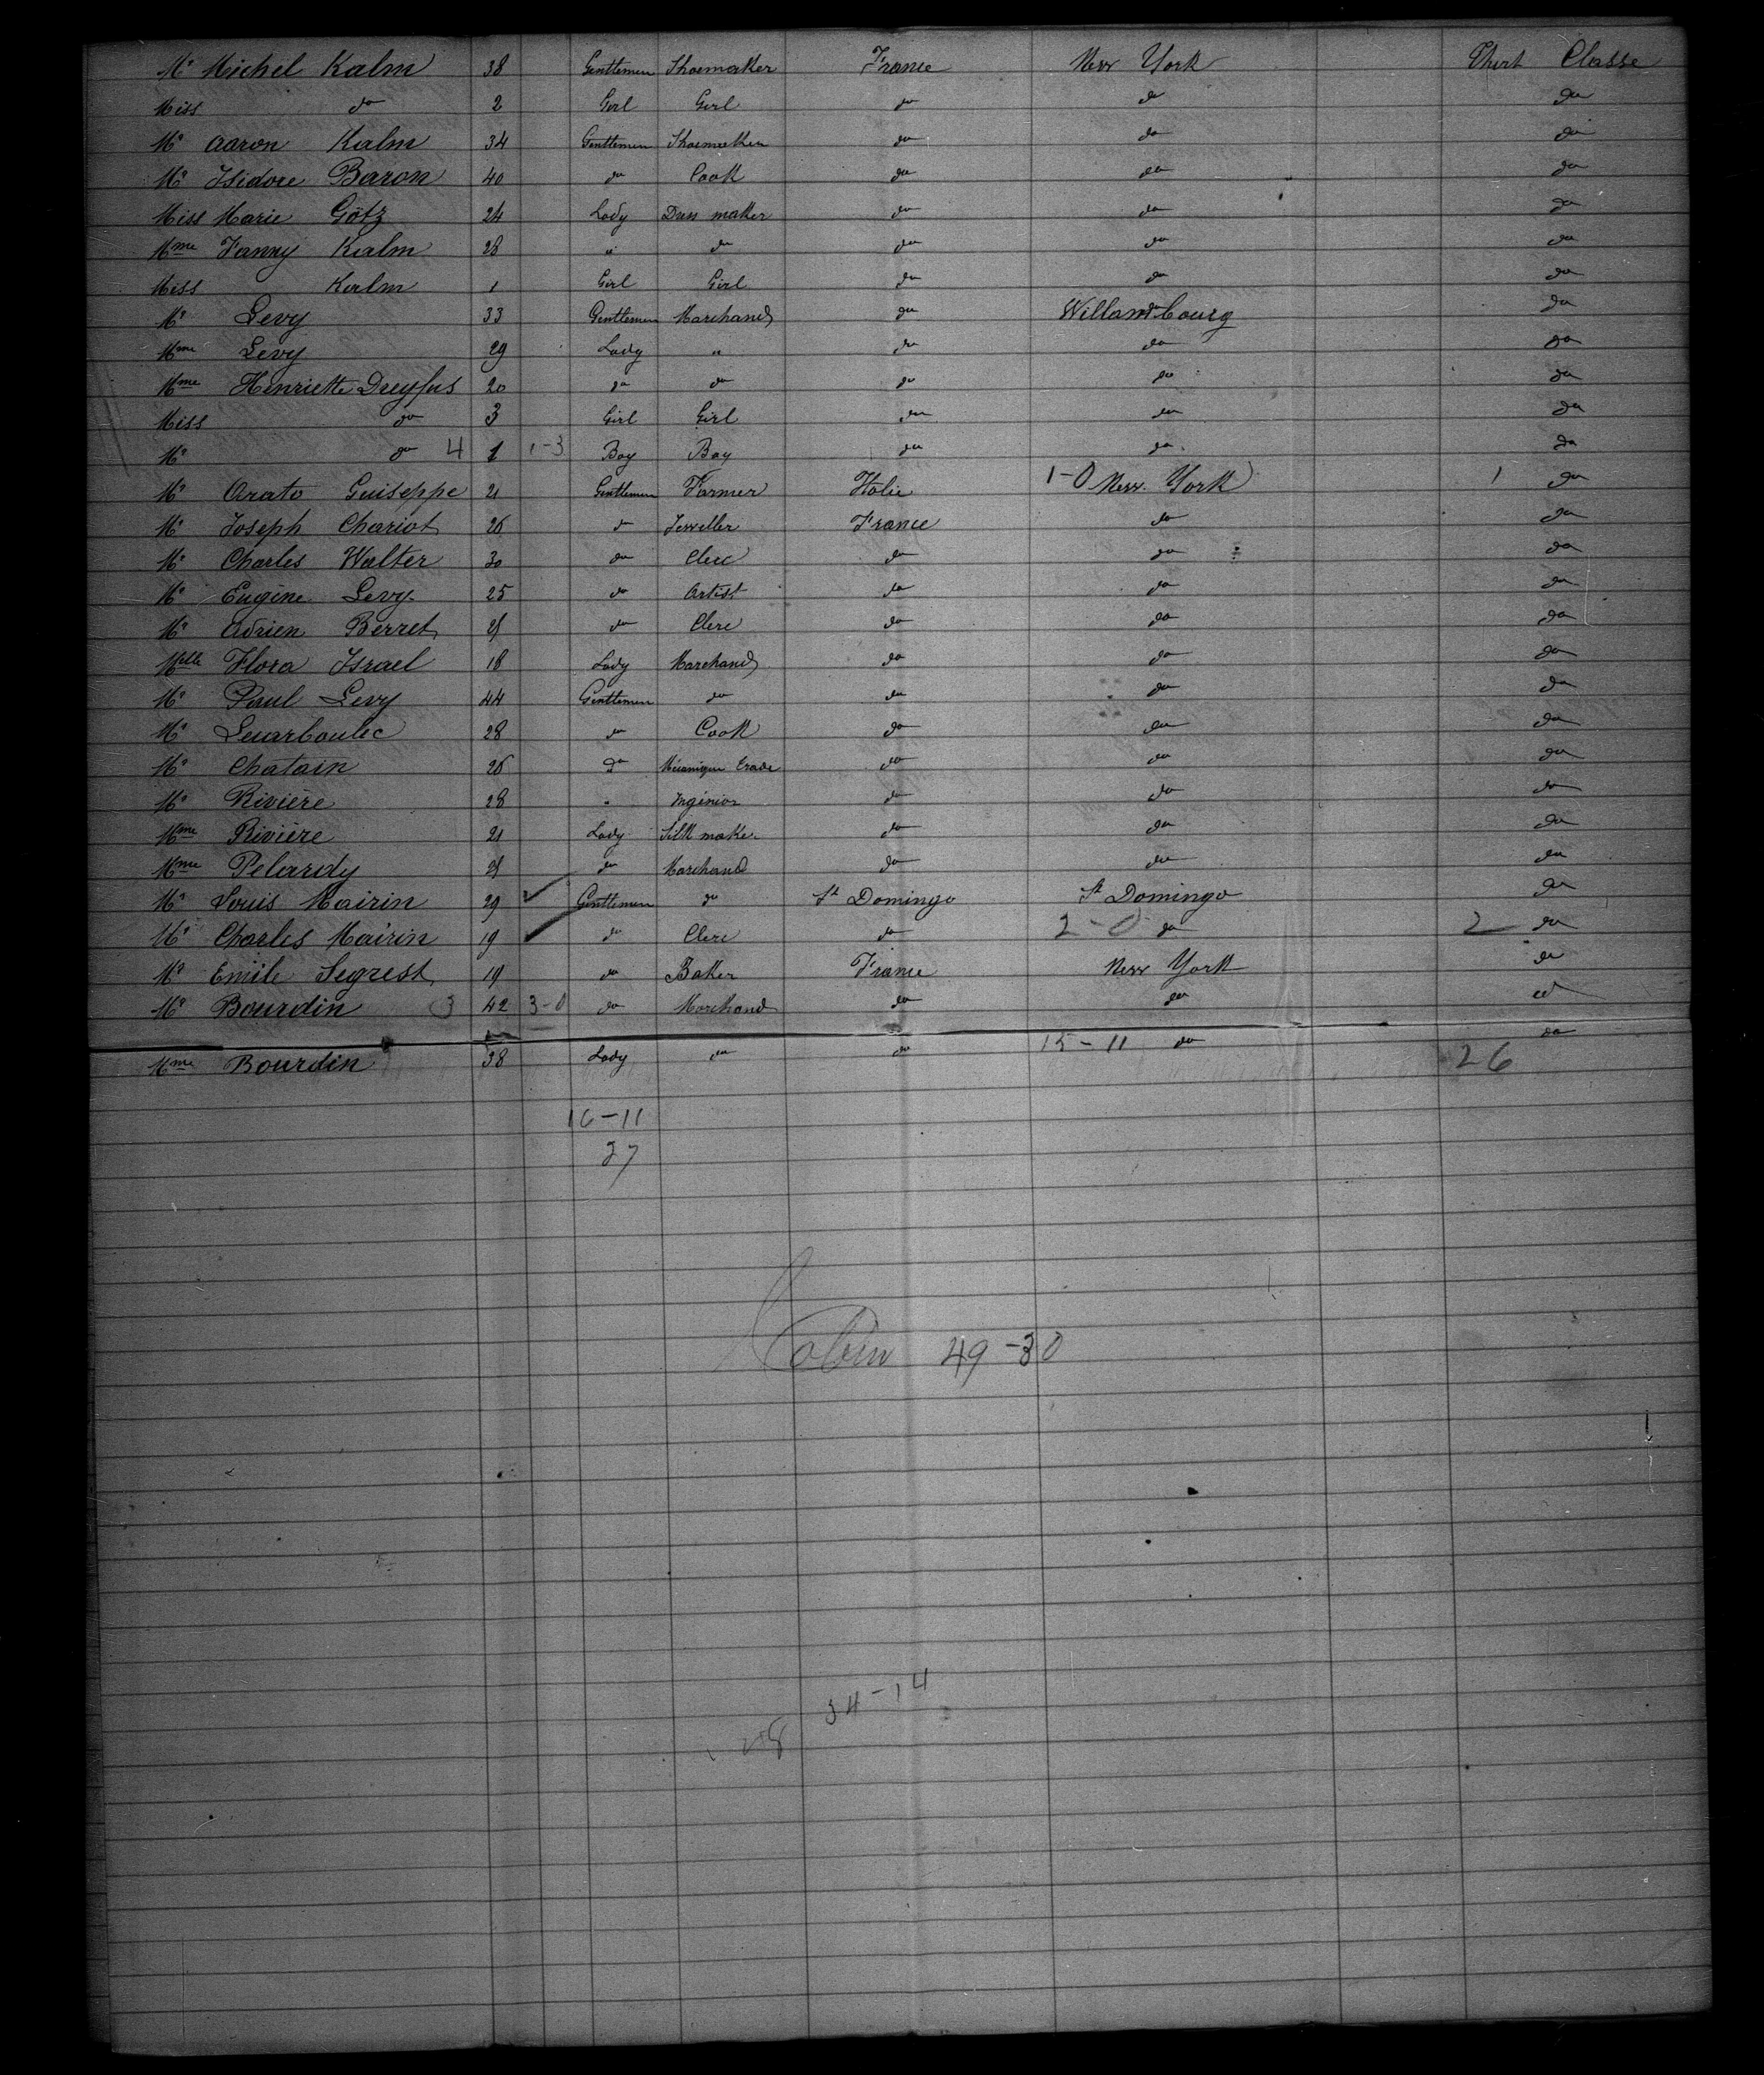 Mr Michel Kalm 38 Gentlemen Shoemaker France New York Thirt Classe
Miss do 2 Girl Girl do do do
Mr Aaron Kalm 34 Gentlemen Shoemaker do do do
Mr Isidore Baron 40 do Cook do do do
Miss Marie Götz 24 Lady Dress maker do do do
Mme Fanny Kalm 28 " do do do do
Miss Kalm 1 Girl Girl do do do
Mr Levy 33 Gentlemen Marchand do do
Mme Levy 29 Lady " do do do
Mme Henriette Dreyfus 20 do do do do do
Miss do 3 Girl Girl do do do
Mr do 4 1 1-3 Boy Boy do do do
Mr Arato Guiseppe 21 Gentlemen Farmer Italie 1-0 New York 1 do
Mr Joseph Chariot 26 do Jeweller France do do
Mr Charles Walter 30 do Clerc do do do
Mr Eugène Levy 25 do Artist do do do
Mr Adrien Berret do Clerc do do do
Melle Flora Israel 18 Lady Marchand do do do
Mr Paul Levy 44 Gentlemen do do do do
Mr 28 do Cook do do do
Mr Chatain 26 do do do do
Mr Rivière 28 " Ingénior do do do
Mme Rivière 21 Lady Silk maker do do do
Mme Pelardy do Marchand do do do
Mr Louis Mairin 29 Gentlemen do St Domingo St Domingo do
Mr Charles Mairin 19 do Clerc do 2-0 do 2 do
Mr Emile Segrest 19 do Baker France New York do
Mr Bourdin 3 42 3-0 do Marchand do do do
Mme Bourdin 38 Lady do do 15-11 do do
26
16-11
27
Cabin 49-30
34-14